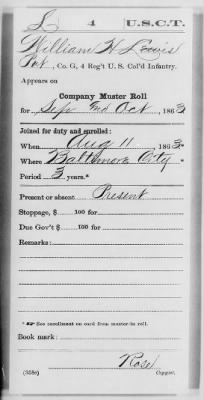 L 4 U.S.C.T.
William H Lewis
Pvt, Co. G, 4 Reg't U. S. Col'd Infantry.
Appears on
Company Muster Roll
for Sept and Oct, 1863
Joined for duty and enrolled:
When Aug 11, 1863*
Where Baltimore City *
Period 3 years.*
Present or absent Present
Stoppage, $ 100 for
Due Gov't $ 100 for
Remarks:
* See enrollment on card from muster-in roll.
Book mark:
Rose
(358c) Copyist.